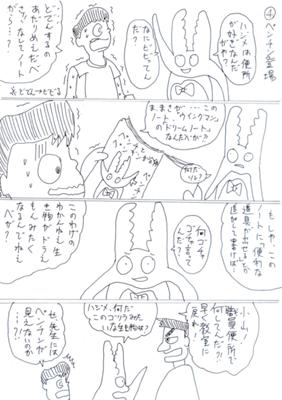 ④
ペンチン登場
ハジメは便所
が好きなんだ
なにビビってん
だ?
どでんするの
あたりめえだべ
さ!!なしてノート
がら…?
ままままさが…この
ノート、『ウイングマン』
の『ドリームノート』
なんだべが?!
何だ
ソレ?
もしや、この
ノートに『便利な
道具が出せる』とか
追加して書けば…
何ゴチャ
ゴチャ言って
んだ?
このわけの
わかんねえ生
き物がドラえ
もんみたく
なるんでねえ
べが?
小山!
職員便所で
何してんだ?!
早く教室に
戻れ!
ハジメ、何だ
このゴリラみた
いな生き物は?
せ、先生には
ペンチンが
見えないのか
…?!